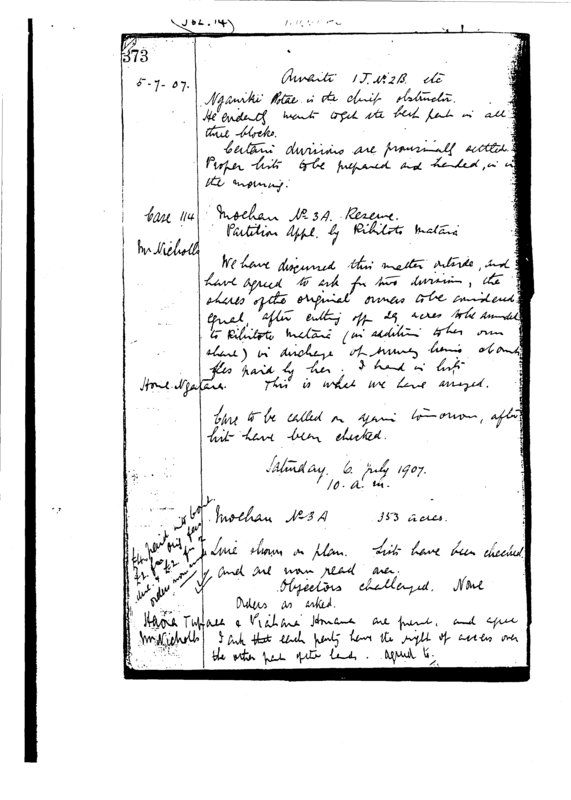 (Vol. 14)
373
5-7-07.
Awaiti 1J. No 2B. etc
Ngawiki Potae is the chief obstructor.
He evidently wants to get the best part in all
three blocks.
Certain divisions are provisionally settled.
Proper lists to be prepared and handed, in in
the morning.
Case 114
Moehau No 3A. Reserve.
Partition Appl. by Rihitoto Mataia
Mr Nicholls
We have discussed this matter outside, and
have agreed to ask for two divisions, the
shares of the original owners to be considered
equal, after cutting off acres to be awarded
to Rihitoto Mataia (in addition to her own
share) in discharge of survey liens
fees paid by her. I hand in lists
Hone Ngatara.
This is what we have arranged.
Case to be called on again tomorrow, after
list have been checked.
Saturday. 6. July 1907.
10. a. m.
Moehau No 3A
353 acres.
Line shown on plan. Lists have been checked
and are now read over.
Objectors challenged. None
Orders as asked.
are present, and agree
Mr Nicholls
I ask that each party have the right of access over
the other part of the lands. Agreed to.